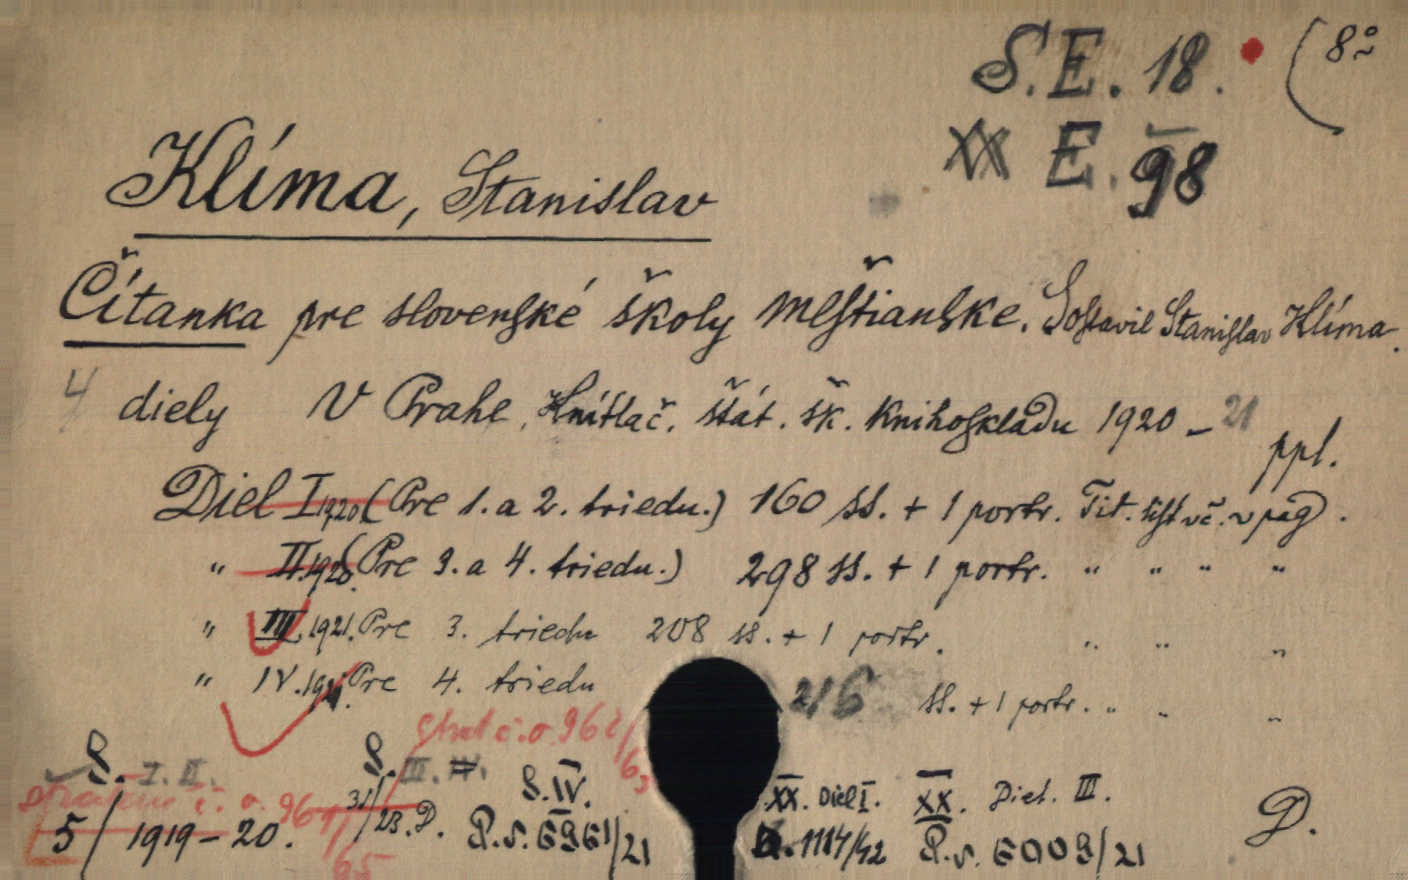 S.E. 18. (8°
XX E. 98
Klíma, Stanislav
Čítanka pre slovenské školy meštianske. Sostavil Stanislav Klíma.
4 diely V Prahe, Knítlač. štát. šk. knihoskladu 1920 – 21
ppl.
Diel I 1920 (Pre 1. a 2. triedu.) 160 ss. + 1 portr. Tit. list vč. v pag.
" II. 1920. (Pre 3. a 4. triedu.) 298 ss. + 1 portr. " " " "
" III 1921. Pre 3. triedu 208 ss. + 1 portr. " " "
" IV. 1921. Pre 4. triedu 216 ss. + 1 portr. " " "
S. I. II. S. III. IV. S. IV. XX. Diel I. XX. Diel. III.
5/1919–20. 31/23. D. P.s. 6961/21 D. 1114/42 P.s. 6009/21 D.